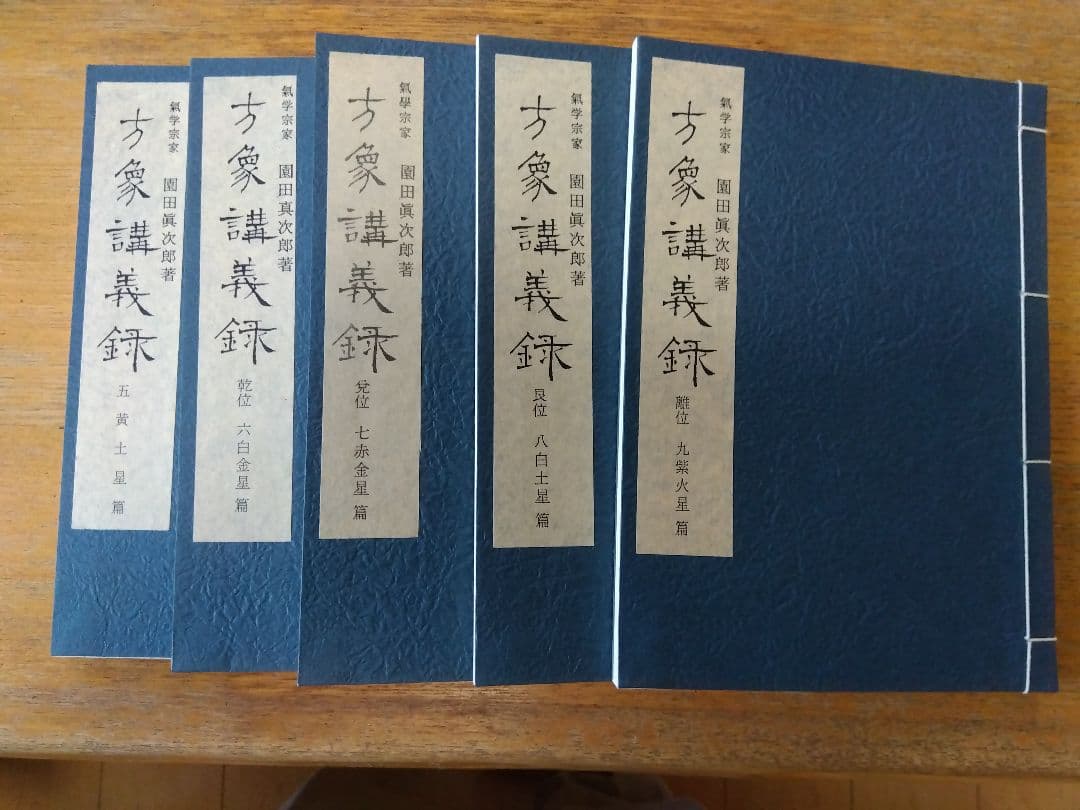 氣学宗家 園田眞次郎著
方象講義録
離位 九紫火星篇
氣学宗家 園田眞次郎著
方象講義録
艮位 八白土星篇
氣學宗家 園田眞次郎著
方象講義録
兌位 七赤金星篇
氣学宗家 園田真次郎著
方象講義録
乾位 六白金星篇
氣学宗家 園田眞次郎著
方象講義録
五黄土星篇